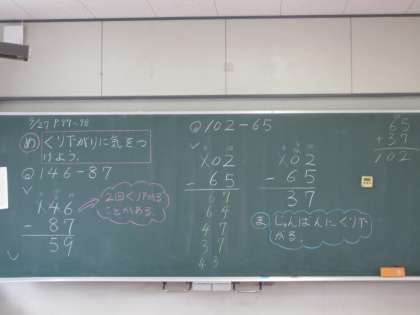 5/27 P.77~78
め くり下がりに気をつ
けよう。
Q 146-87
146
- 87
59
2回くり下がる
ことがある。
Q 102-65
102
- 65
67
64
47
47
37
43
102
- 65
37
ま じゅんばんにくり下
がる。
65
+ 37
102